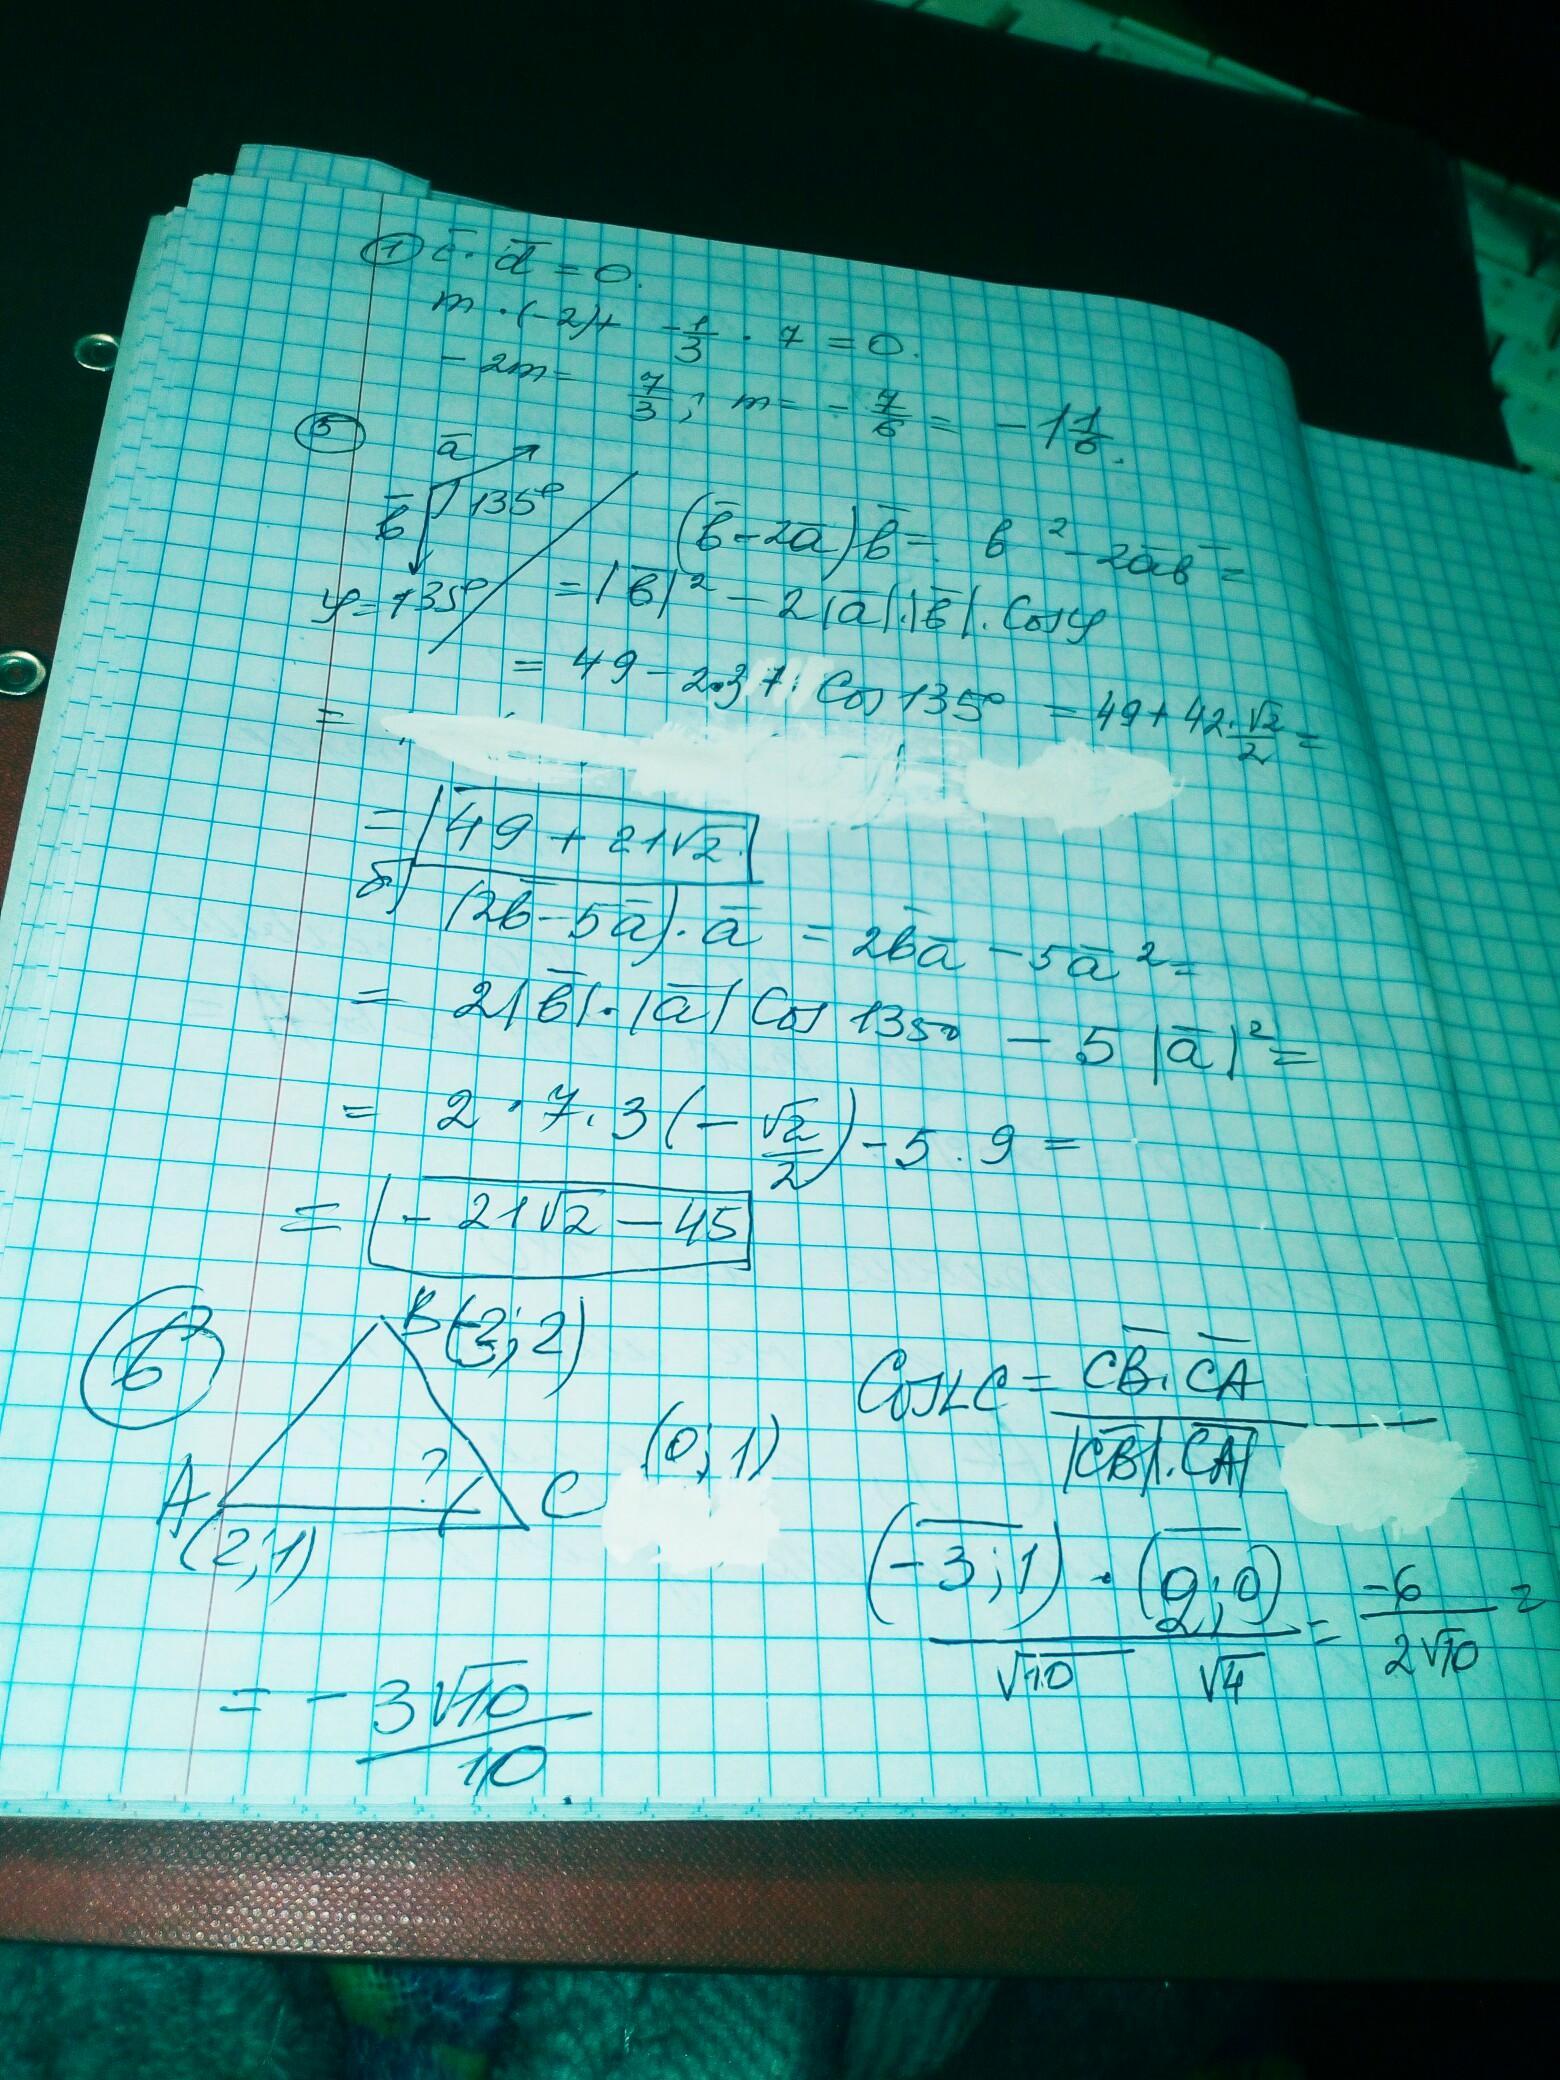 ① c̅ · d̅ = 0.
m · (-2) + -1/3 · 7 = 0.
- 2m = 7/3 ; m = - 7/6 = - 1 1/6.
⑤
a̅
b̅ 135°
φ = 135°
(b̅ - 2a̅) b̅ = b² - 2a̅b̅ =
= |b̅|² - 2|a̅|·|b̅|· Cosφ
= 49 - 2·3·7· Cos 135° = 49 + 42 · √2/2 =
=
= 49 + 21√2
б) (2b̅ - 5a̅) · a̅ = 2b̅a̅ - 5a̅² =
= 2|b̅|·|a̅| Cos 135° - 5 |a̅|² =
= 2 · 7 · 3 (- √2/2) - 5 · 9 =
= - 21√2 - 45
⑥
B(-3; 2)
A (2; 1)
?
C (0; 1)
Cos∠C = C̅B̅ · C̅A̅ / |C̅B̅|·|C̅A̅|
(-3; 1) · (2; 0) / √10 √4 = -6 / 2√10 =
= - 3√10 / 10.